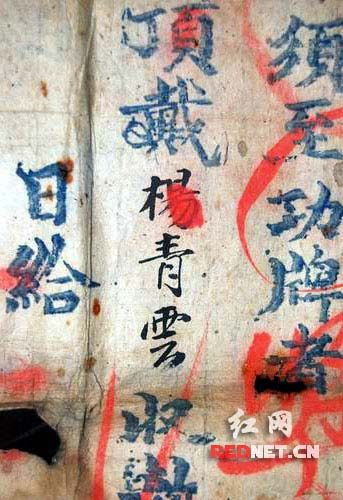 須至功牌者
頂戴楊青雲收執
日給
红网
REDNET.CN